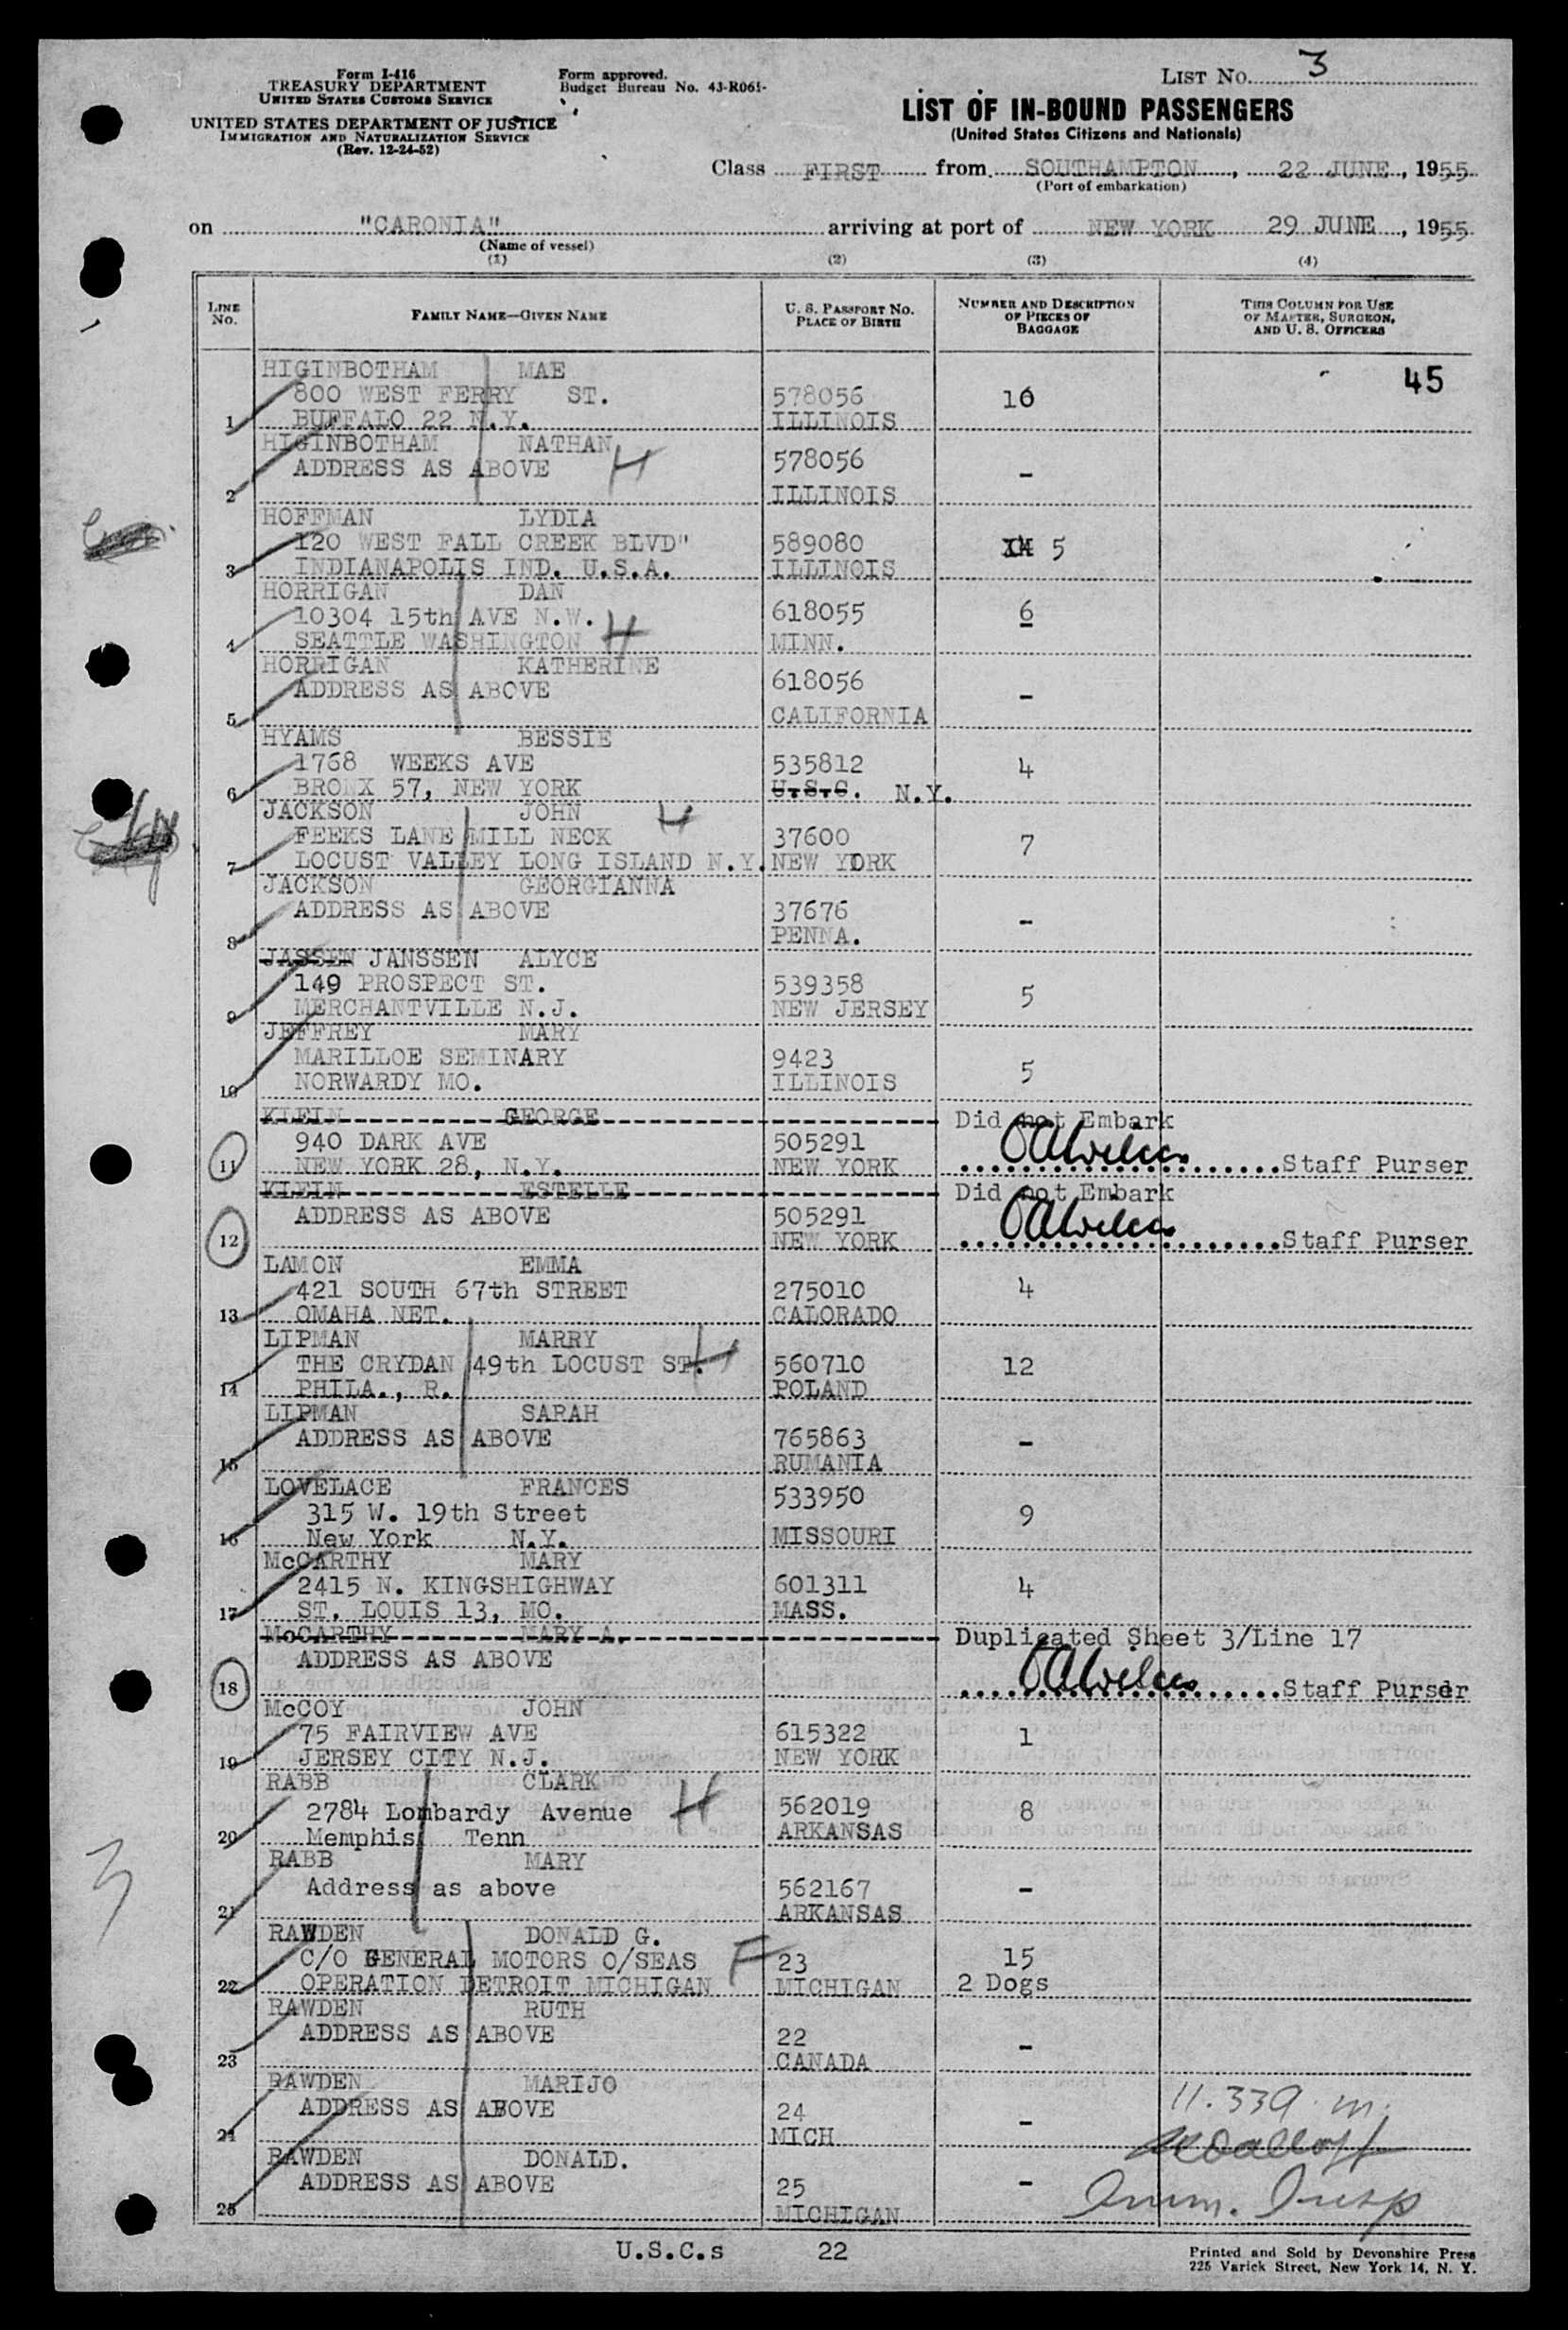 Form I-416
TREASURY DEPARTMENT
UNITED STATES CUSTOMS SERVICE
UNITED STATES DEPARTMENT OF JUSTICE
IMMIGRATION AND NATURALIZATION SERVICE
(Rev. 12-24-52)
Form approved.
Budget Bureau No. 43-R061-
LIST No. 3
LIST OF IN-BOUND PASSENGERS
(United States Citizens and Nationals)
Class FIRST from SOUTHAMPTON, 22 JUNE, 1955
(Port of embarkation)
on "CARONIA" arriving at port of NEW YORK 29 JUNE, 1955
(Name of vessel)
(1) (2) (3) (4)
LINE No. FAMILY NAME—GIVEN NAME U. S. PASSPORT No. PLACE OF BIRTH NUMBER AND DESCRIPTION OF PIECES OF BAGGAGE THIS COLUMN FOR USE OF MASTER, SURGEON, AND U. S. OFFICERS
HIGINBOTHAM MAE 45
800 WEST FERRY ST. 578056 10
1 BUFFALO 22 N.Y. ILLINOIS
HIGINBOTHAM NATHAN H
ADDRESS AS ABOVE 578056 -
2 ILLINOIS
HOFFMAN LYDIA
120 WEST FALL CREEK BLVD" 589080 5
3 INDIANAPOLIS IND. U.S.A. ILLINOIS
HORRIGAN DAN
10304 15th AVE N.W. 618055 6
4 SEATTLE WASHINGTON H MINN.
HORRIGAN KATHERINE
ADDRESS AS ABOVE 618056 -
5 CALIFORNIA
HYAMS BESSIE
1768 WEEKS AVE 535812 4
6 BRONX 57, NEW YORK U.S.C. N.Y.
JACKSON JOHN H
FEEKS LANE MILL NECK 37600 7
7 LOCUST VALLEY LONG ISLAND N.Y. NEW YORK
JACKSON GEORGIANNA
ADDRESS AS ABOVE 37676 -
8 PENNA.
JASSEN JANSSEN ALYCE
149 PROSPECT ST. 539358 5
9 MERCHANTVILLE N.J. NEW JERSEY
JEFFREY MARY
MARILLOE SEMINARY 9423 5
10 NORWARDY MO. ILLINOIS
KLEIN GEORGE Did not Embark
940 DARK AVE 505291
11 NEW YORK 28, N.Y. NEW YORK Staff Purser
KLEIN ESTELLE Did not Embark
ADDRESS AS ABOVE 505291
12 NEW YORK Staff Purser
LAMON EMMA
421 SOUTH 67th STREET 275010 4
13 OMAHA NET. CALORADO
LIPMAN MARRY
THE CRYDAN 49th LOCUST ST. H 560710 12
14 PHILA., R. POLAND
LIPMAN SARAH
ADDRESS AS ABOVE 765863 -
15 RUMANIA
LOVELACE FRANCES
315 W. 19th Street 533950 9
16 New York N.Y. MISSOURI
McCARTHY MARY
2415 N. KINGSHIGHWAY 601311 4
17 ST. LOUIS 13, MO. MASS.
McCARTHY MARY A. Duplicated Sheet 3/Line 17
ADDRESS AS ABOVE
18 Staff Purser
McCOY JOHN
75 FAIRVIEW AVE 615322 1
19 JERSEY CITY N.J. NEW YORK
RABB CLARK H
2784 Lombardy Avenue 562019 8
20 Memphis Tenn ARKANSAS
RABB MARY
Address as above 562167 -
21 ARKANSAS
3
RAWDEN DONALD G.
C/O GENERAL MOTORS O/SEAS F 23 15
22 OPERATION DETROIT MICHIGAN MICHIGAN 2 Dogs
RAWDEN RUTH
ADDRESS AS ABOVE 22 -
23 CANADA
RAWDEN MARIJO
ADDRESS AS ABOVE 24 - 11.339 m.
24 MICH
RAWDEN DONALD.
ADDRESS AS ABOVE 25 - Imm. Insp
25 MICHIGAN
U.S.C.s 22
Printed and Sold by Devonshire Press
225 Varick Street, New York 14, N. Y.